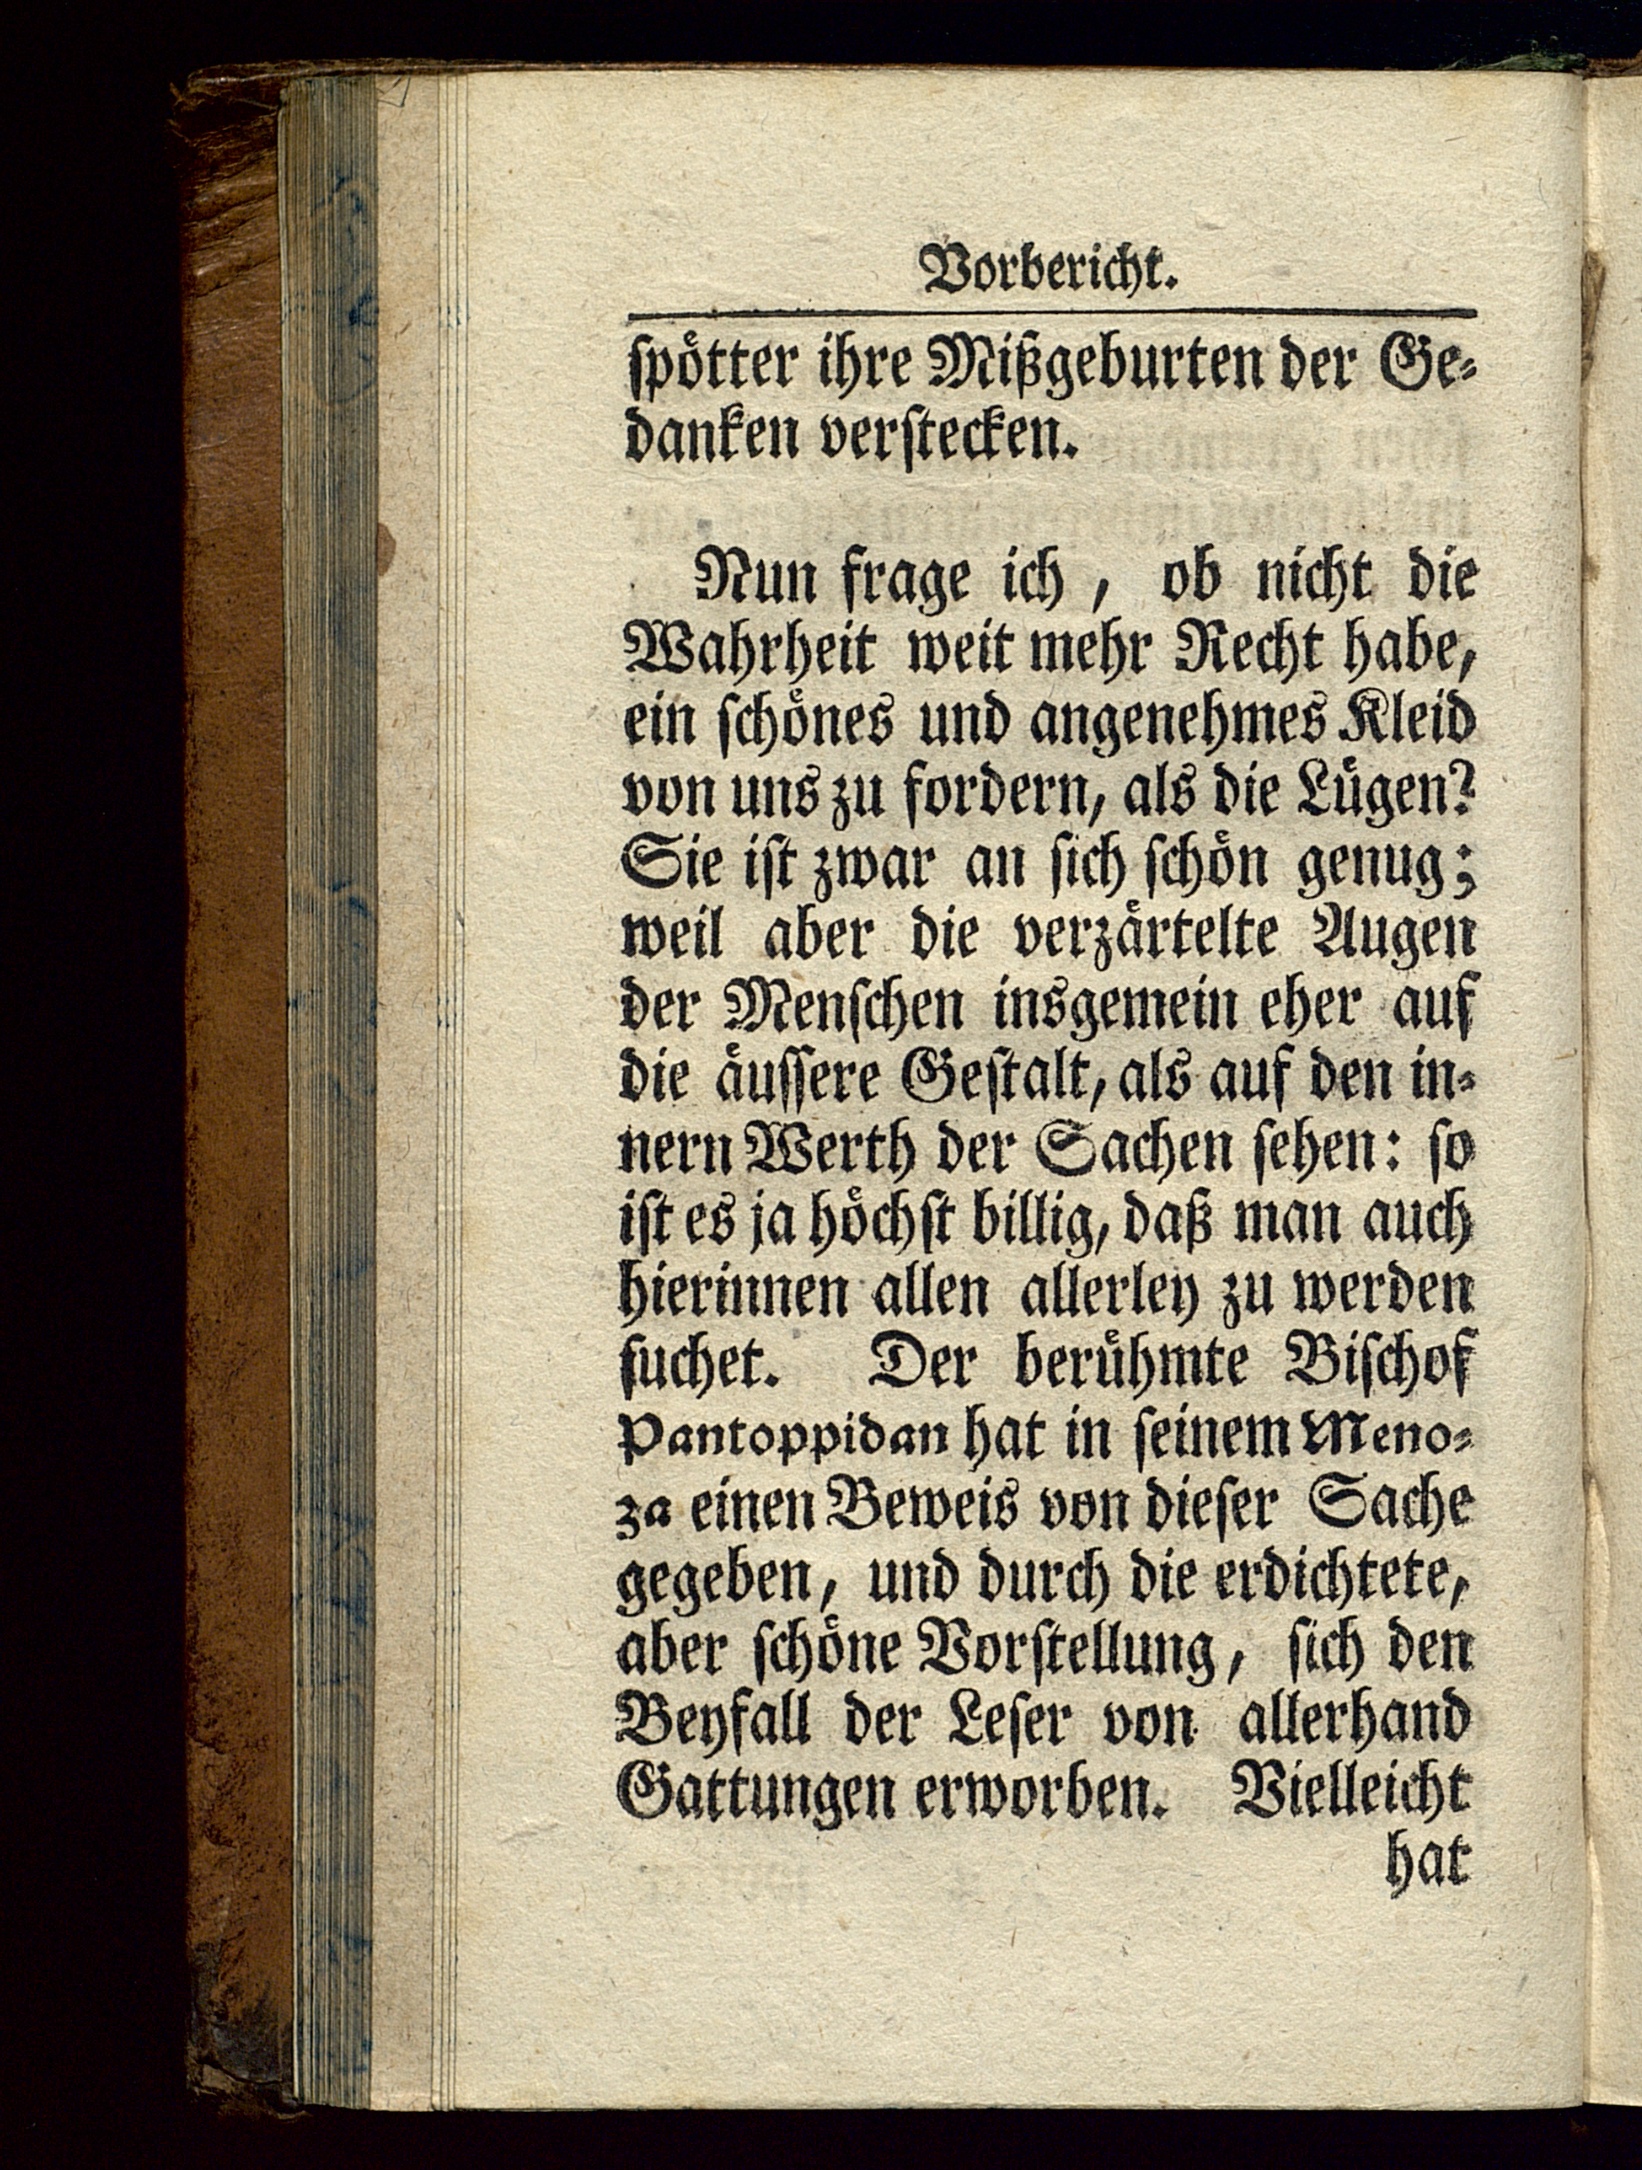 Vorbericht.
ſpoͤtter ihre Mißgeburten der Ge⸗
danken verſtecken.
Nun frage ich, ob nicht die
Wahrheit weit mehr Recht habe,
ein ſchoͤnes und angenehmes Kleid
von uns zu fordern, als die Luͤgen?
Sie iſt zwar an ſich ſchoͤn genug;
weil aber die verzaͤrtelte Augen
der Menſchen insgemein eher auf
die aͤuſſere Geſtalt, als auf den in⸗
nern Werth der Sachen ſehen: ſo
iſt es ja hoͤchſt billig, daß man auch
hierinnen allen allerley zu werden
ſuchet. Der beruͤhmte Biſchof
Pantoppidan hat in ſeinem Meno⸗
za einen Beweis von dieſer Sache
gegeben, und durch die erdichtete,
aber ſchoͤne Vorſtellung, ſich den
Beyfall der Leſer von allerhand
Gattungen erworben. Vielleicht
hat